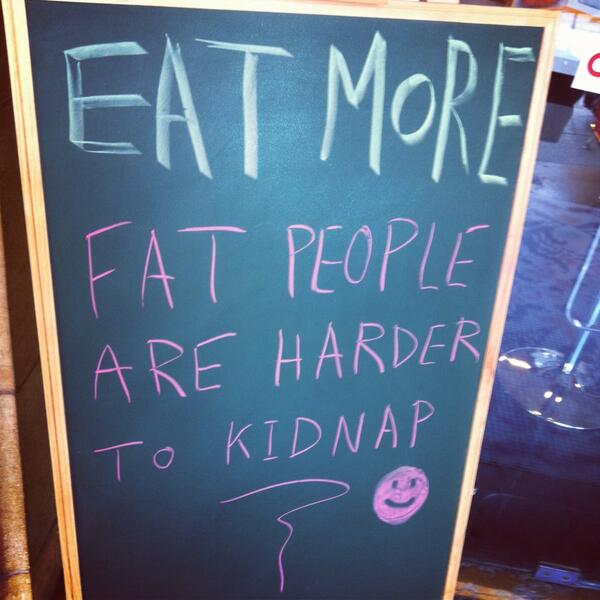 EAT MORE
FAT PEOPLE
ARE HARDER
TO KIDNAP